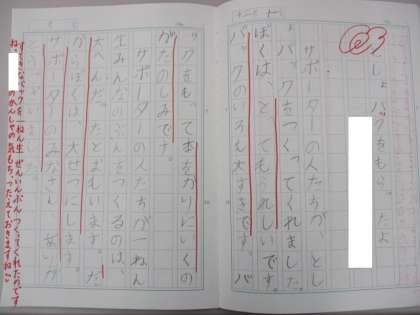 としょバックをもらったよ
サポーターの人たちが、とし
ょバックをつくってくれました。
ぼくは、とてもうれしいです。
バックのいろも大すきです。バ
ックをもって本をかりにいくの
がたのしみです。
サポーターの人たちが一ねん
生みんなのぶんをつくるのは、
大へんだったとおもいます。だ
からぼくは、大せつにします。
サポーターのみなさん、ありが
とうございました。
すてきなバックを一ねん生ぜんいんぶんつくってくれたのです
ね。
のかんしゃの気もち、つたえておきますね。